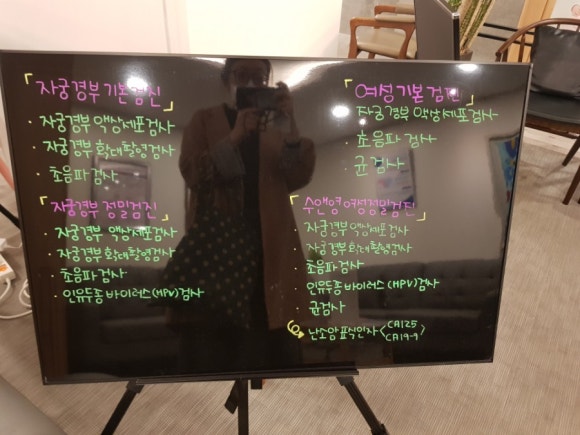 「자궁경부 기본검진」
· 자궁경부 액상세포검사
· 자궁경부 확대촬영검사
· 초음파 검사
「자궁경부 정밀검진」
· 자궁경부 액상세포검사
· 자궁경부 확대촬영검사
· 초음파검사
· 인유두종 바이러스(HPV)검사
「여성기본검진」
· 자궁경부 액상세포검사
· 초음파 검사
· 균검사
「수앤영 여행정밀검진」
· 자궁경부 액상세포검사
· 자궁경부 확대촬영검사
· 초음파검사
· 인유두종 바이러스(HPV)검사
· 균검사
난소암 표식인자 < CA125
CA19-9 >